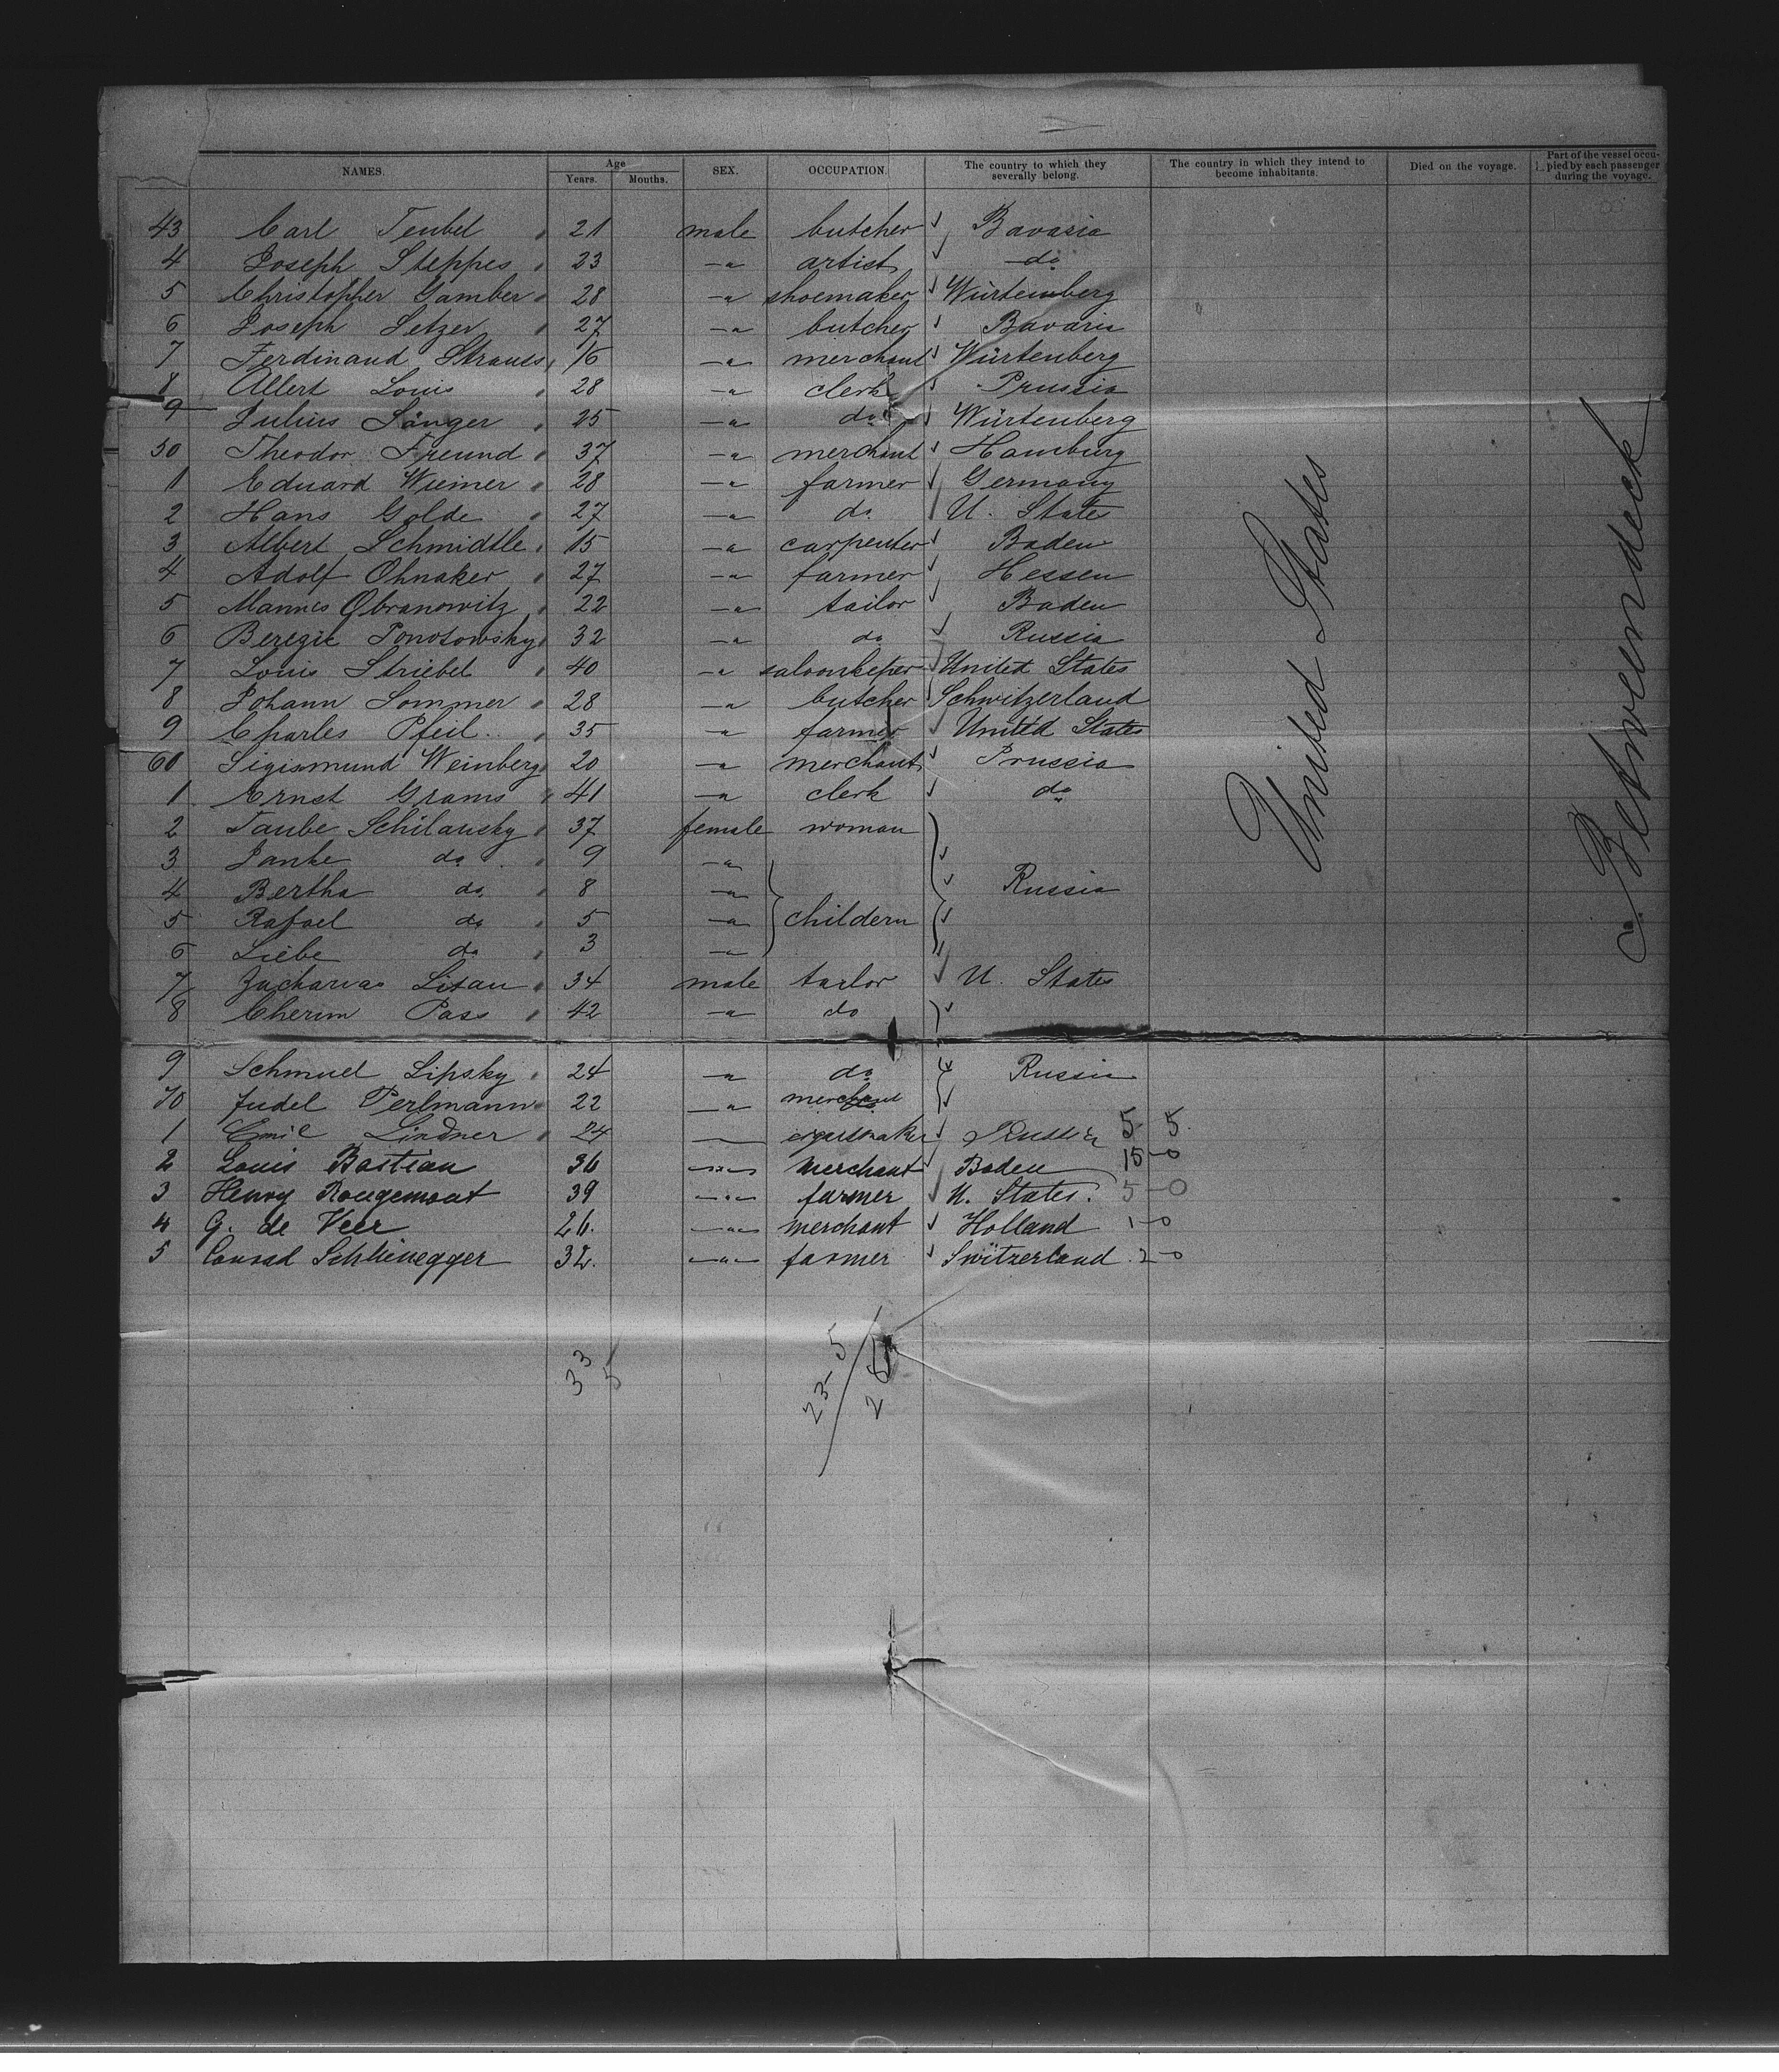 NAMES. Age Years. Months. SEX. OCCUPATION. The country to which they severally belong. The country in which they intend to become inhabitants. Died on the voyage. Part of the vessel occupied by each passenger during the voyage.
43 Carl Teubel 21 male butcher Bavaria
4 Joseph Steppes 23 —"— artist do
5 Christopher Gamber 28 —"— shoemaker Würtemberg
6 Joseph Setzer 27 —"— butcher Bavaria
7 Ferdinand Strauss 16 —"— merchant Würtenberg
8 Albert Louis 28 —"— clerk Prussia
9 Julius Sänger 25 —"— do Würtenberg
50 Theodor Freund 37 —"— merchant Hamburg
1 Eduard Wiemer 28 —"— farmer Germany
2 Hans Golde 27 —"— do U. States
3 Albert Schmidtle 15 —"— carpenter Baden
4 Adolf Ohnaker 27 —"— farmer Hessen
5 Mannes Obranowitz 22 —"— tailor Baden
6 Beregie Ponotowsky 32 —"— do Russia
7 Louis Striebel 40 —"— saloonkeper United States
8 Johann Sommer 28 —"— butcher Schwitzerland
9 Charles Pfeil 35 —"— farmer United States
60 Sigismund Weinberg 20 —"— merchant Prussia
1 Ernst Grams 41 —"— clerk do
2 Taube Schilansky 37 female woman
3 Janke do 9 —"—
4 Bertha do 8 —"— Russia
5 Rafael do 5 —"— childern
6 Liebe do 3 —"—
7 Zacharias Lisau 34 male tailor U. States
8 Cherim Pass 42 —"— do
9 Schmuel Lipsky 24 —"— do Russia
70 Judel Perlmann 22 —"— merchant
1 Emil Lindner 24 — cigarmaker Russia 5 5
2 Louis Bastian 36 —"— merchant Baden 15-0
3 Henry Rougemont 39 —"— farmer U. States. 5-0
4 G. de Veer 26. —"— merchant Holland 1-0
5 Conrad Schlinegger 32. —"— farmer Switzerland. 2-0
United States
Betweendeck
33
5
23-5
26